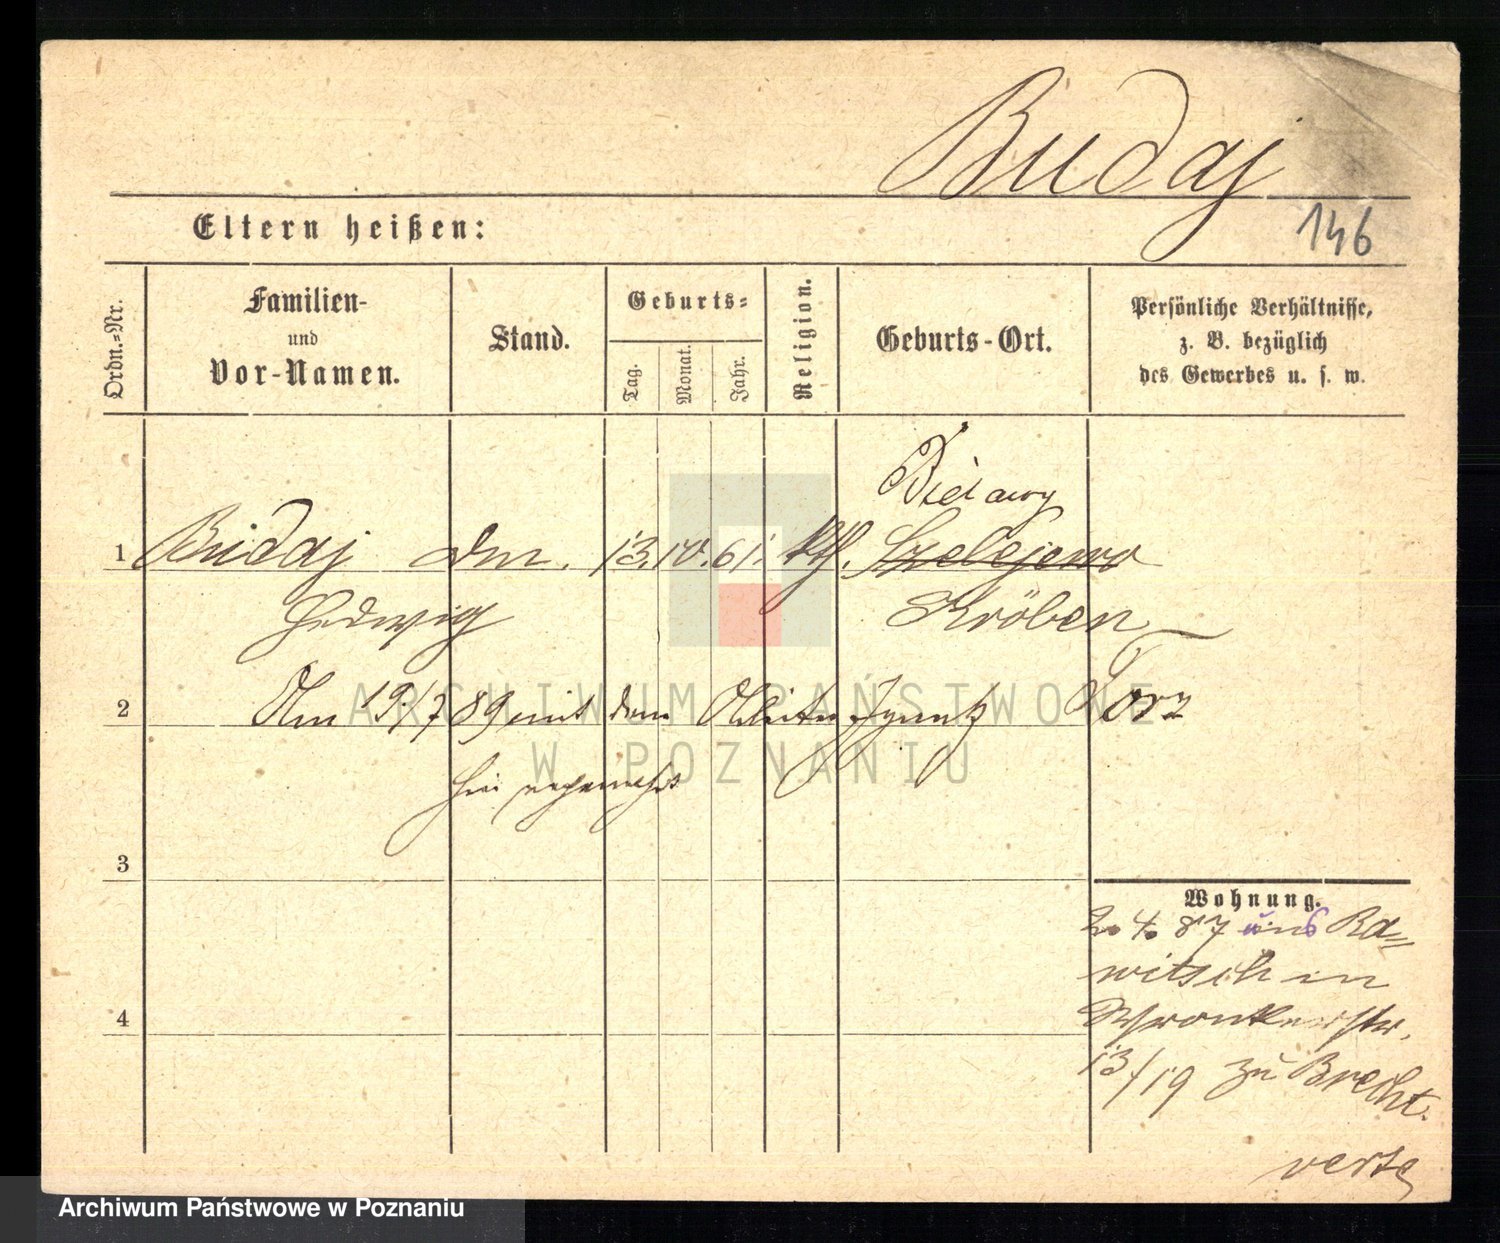 Budaj
Eltern heißen:
146
Ordn.=Nr.
Familien-
und
Vor-Namen.
Stand.
Geburts=
Tag.
Monat.
Jahr.
Religion.
Geburts-Ort.
Persönliche Verhältnisse,
z. B. bezüglich
des Gewerbes u. s. w.
1
Budaj
13. 10. 61. kth.
Szelejewo
Hedwig
Kröben
ARCHIWUM PAŃSTWOWE
W POZNANIU
2
Am 19/7 89 mit dem
3
Wohnung.
2. 4. 87 aus Ra=
witsch in
Wronkerstr.
4
13/19 zu Brecht.
verte
Archiwum Państwowe w Poznaniu